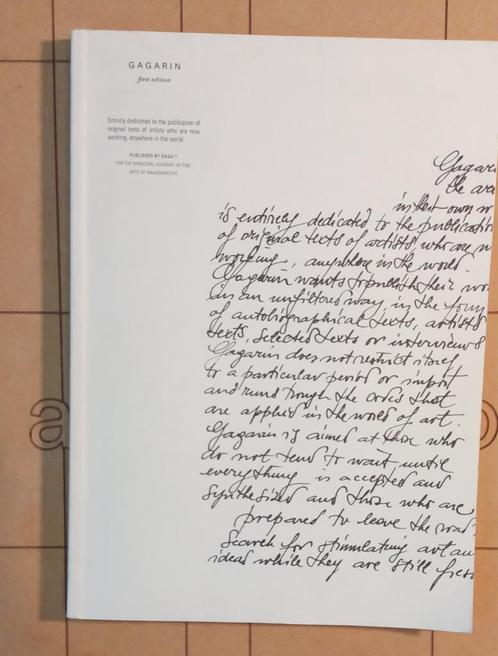 GAGARIN
first edition
Entirely dedicated to the publication of
original texts of artists who are now
working, anywhere in the world
PUBLISHED BY GAGA
FOR THE MUNICIPAL ACADEMY OF FINE
ARTS OF WAASMUNSTER
Gagari
the ar
in their own w
is entirely dedicated to the publicati
of original texts of artists, who are n
working, anywhere in the world.
Gagarin wants to publish their wo
in an unfiltered way, in the form
of autobiographical texts, artists
texts, selected texts or interviews
Gagarin does not restrict itself
to a particular period or import
and runs trough the codes that
are applied in the world of art.
Gagarin is aimed at those who
do not tend to wait until
everything is accepted and
synthesized and those who are
prepared to leave the road
search for stimulating art an
ideas while they are still fres
a